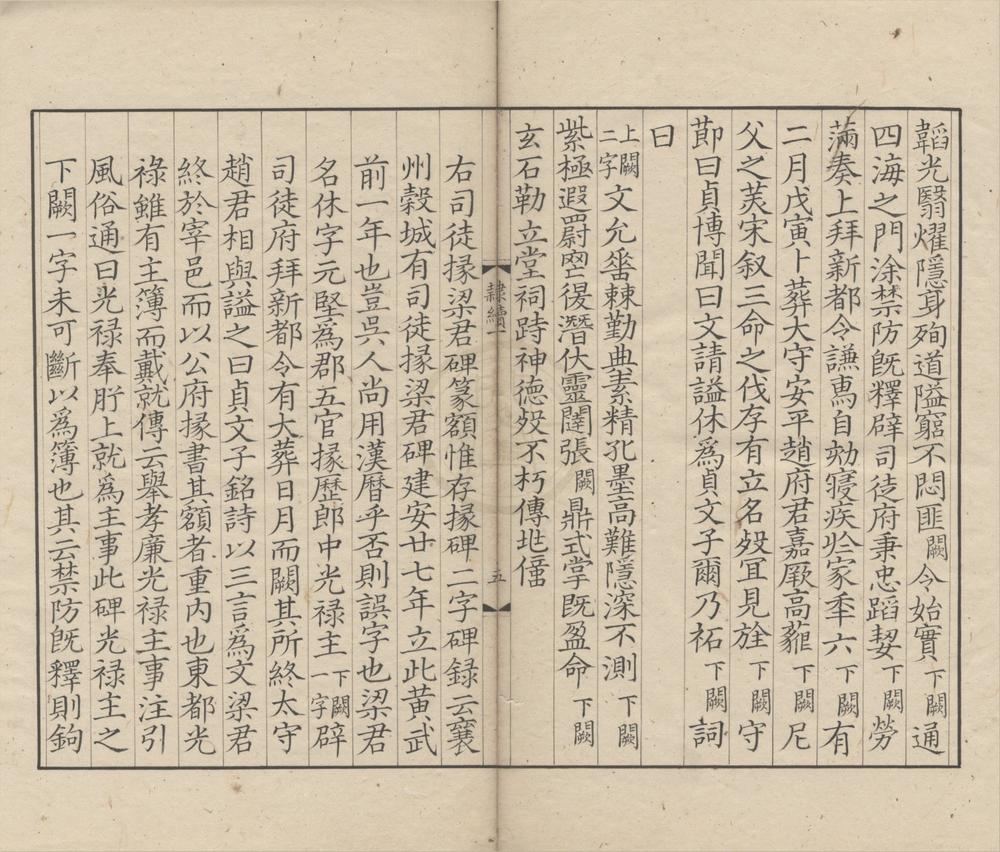 韜光翳燿隱身殉道隘窮不悶匪闕今始實下闕通
四海之門涂禁防旣釋辟司徒府秉忠蹈㓞下闕勞
滿奏上拜新都令謙焉自劾寑疾𣦸家秊六下闕有
二月戊寅卜葬大守安平趙府君嘉厥高蕥下闕尼
父之䒾宋叙三命之伐存有立名歿冝見㫌下闕守
節曰貞博聞曰文請諡休爲貞文子爾乃祏下闕詞
曰
上闕二字文允畨棘勤典素精孔墨高難隱深不測下闕
紫極遐羂𦊰罒𢕛潛伏靈闥張闕鼎式掌旣盈命下闕
玄石勒立堂祠跱神德歿不朽傳𠀍僵
隸續
五
右司徒掾梁君碑篆額惟存掾碑二字碑録云襄
州穀城有司徒掾梁君碑建安廿七年立此黃武
前一年也豈吳人尚用漢曆乎否則誤字也梁君
名休字元堅爲郡五官掾歷郎中光禄主下闕一字辟
司徒府拜新都令有大葬日月而闕其所終太守
趙君相與諡之曰貞文子銘詩以三言爲文梁君
終於宰邑而以公府掾書其額者重內也東都光
禄雖有主簿而戴就傳云舉孝廉光禄主事注引
風俗通曰光禄奉肝上就爲主事此碑光禄主之
下闕一字未可斷以爲簿也其云禁防旣釋則鉤